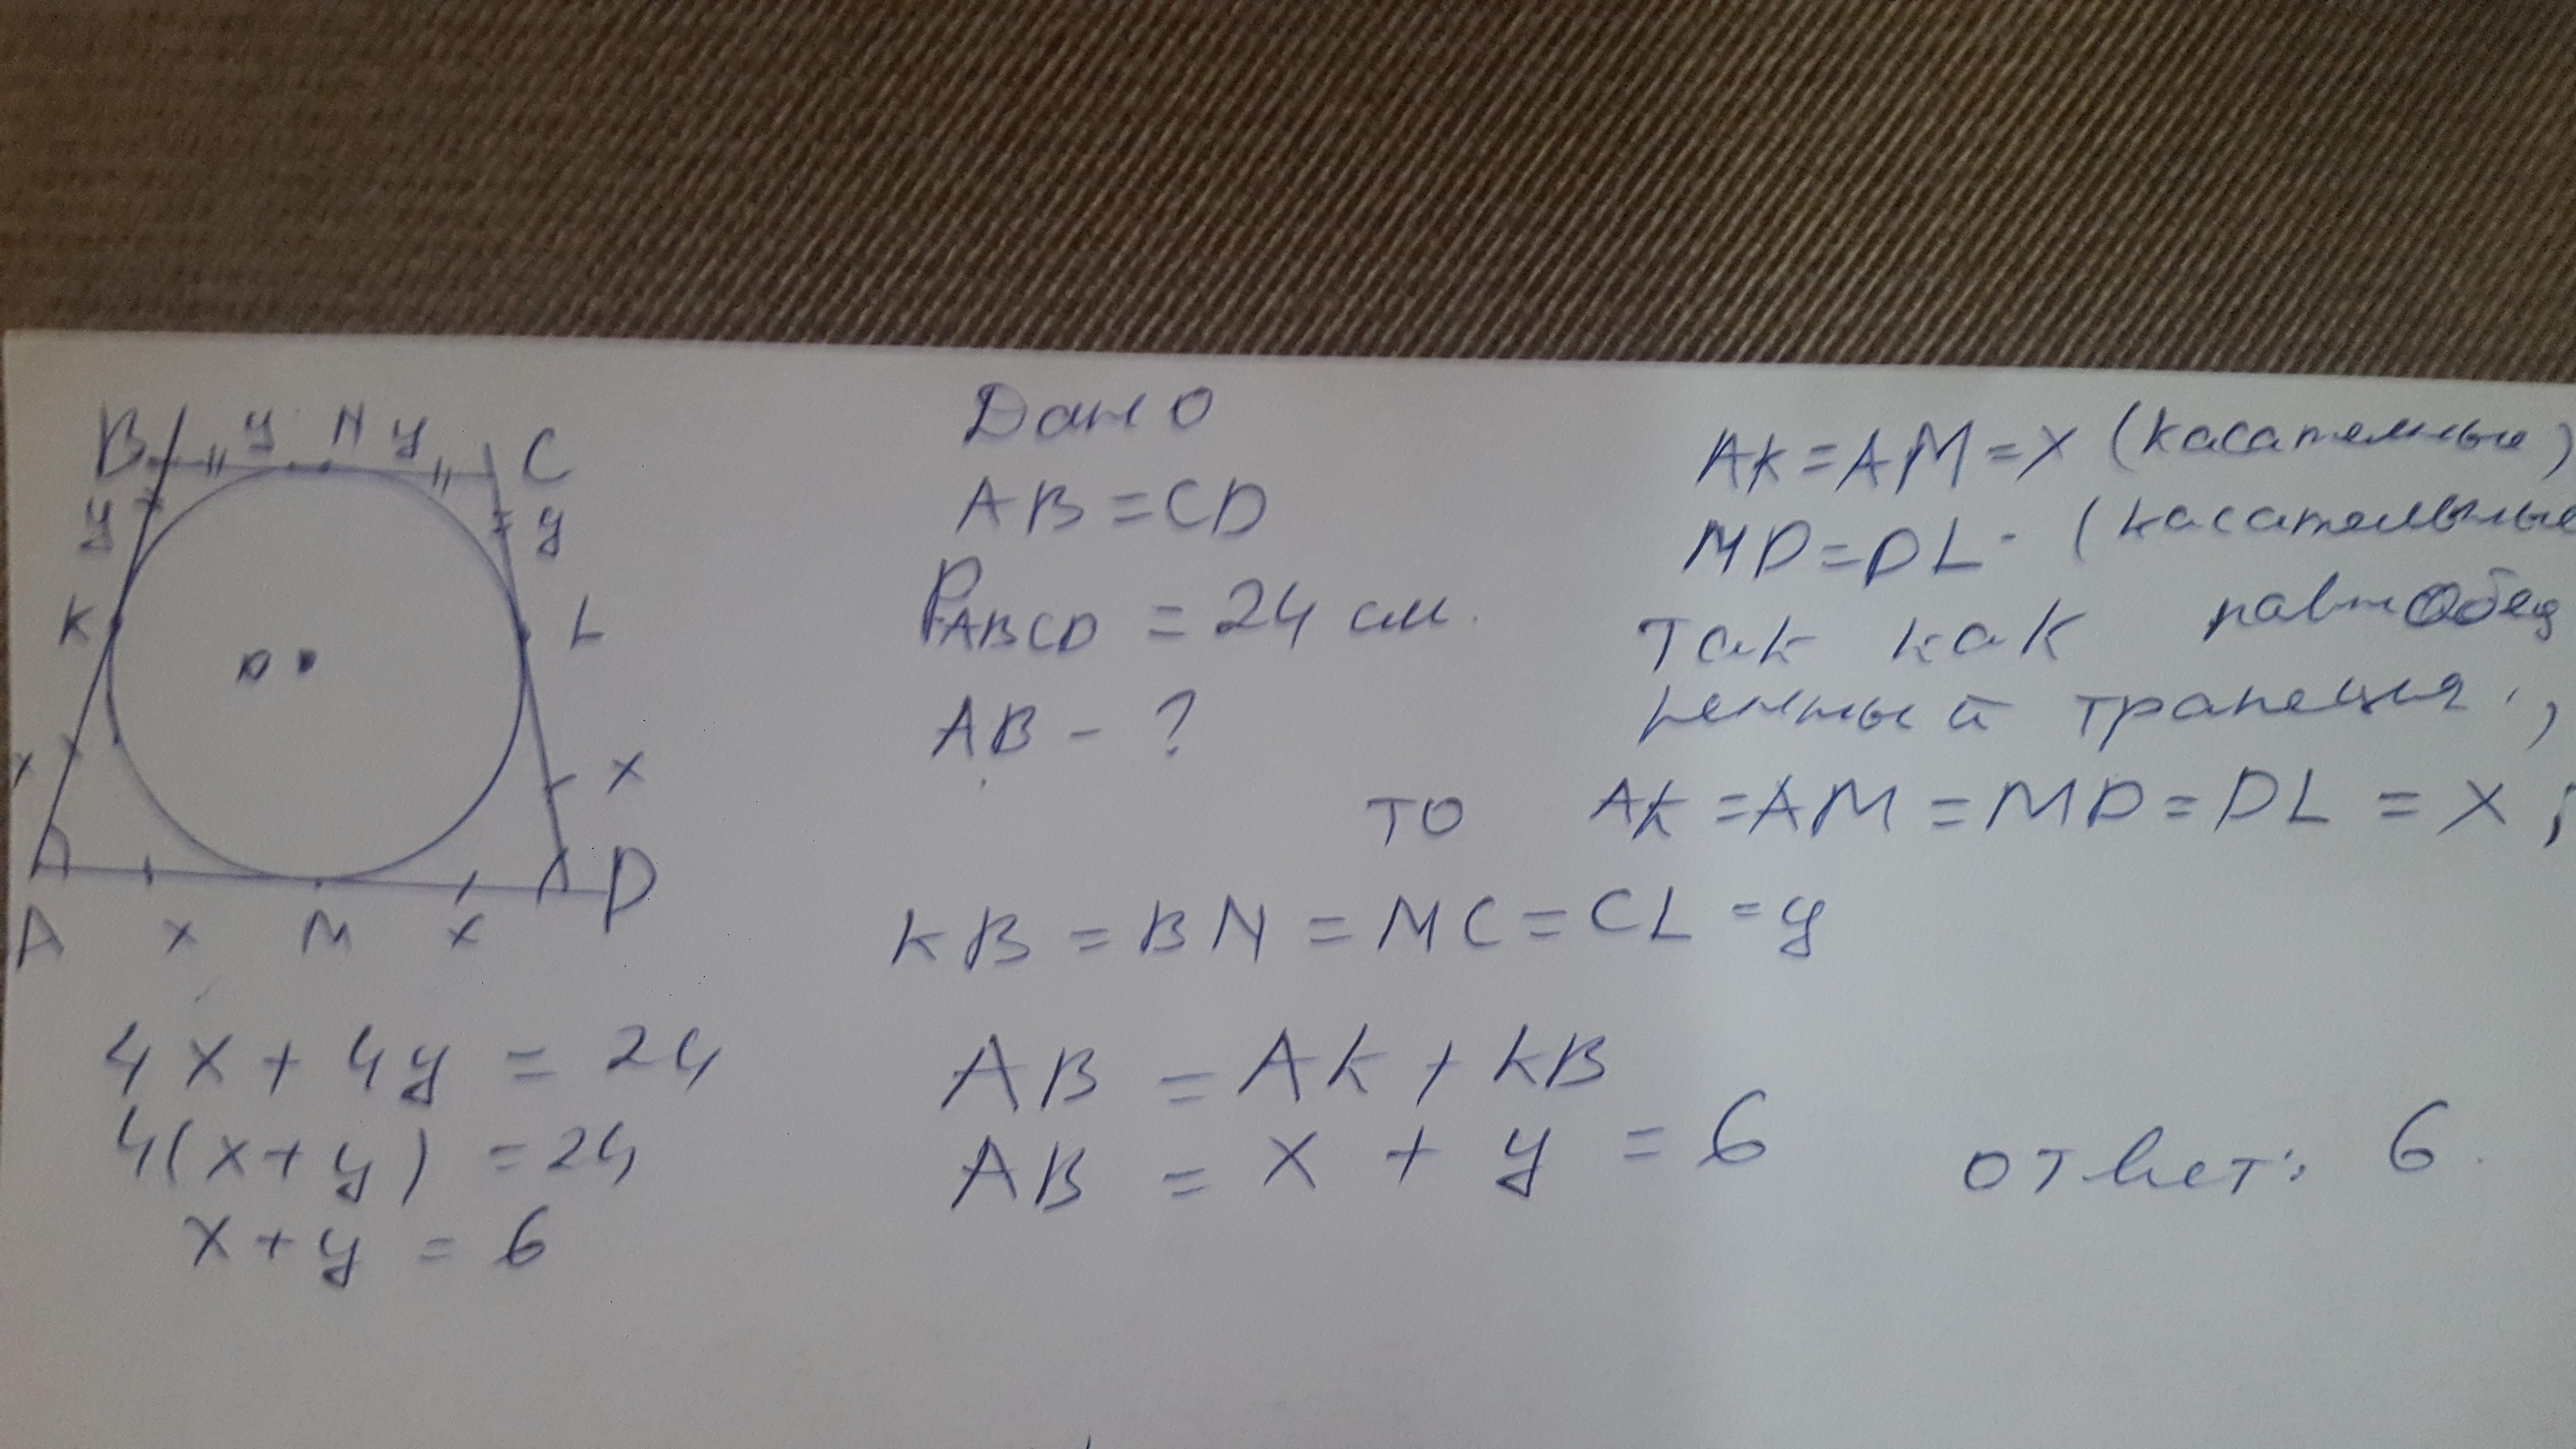 B y N y C
y y
K L
O
x x
A x M x D
Дано
AB = CD
PABCD = 24 см.
AB - ?
AK = AM = x (касательные)
MD = DL - (касательные
Так как равнобед
ренный трапеция,
то AK = AM = MD = DL = x;
KB = BN = NC = CL = y
4x + 4y = 24
4(x+y) = 24
x + y = 6
AB = AK + KB
AB = x + y = 6
ответ: 6.